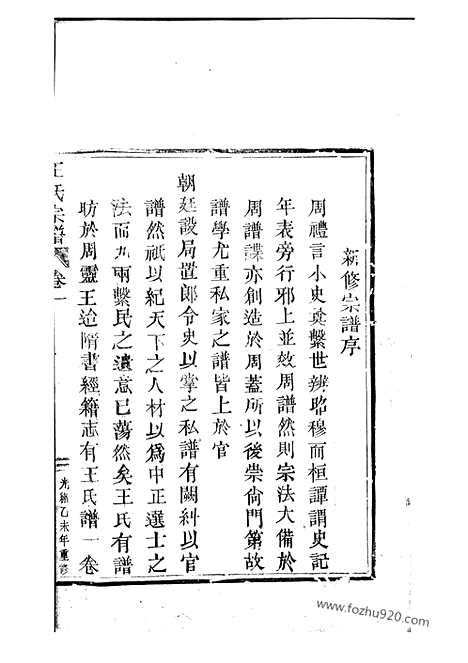 新修宗譜序
周禮言小史奠繫世辨昭穆而桓譚謂史記
年表旁行邪上並效周譜然則宗法大備於
周譜諜亦創造於周蓋所以後崇尙門第故
譜學尤重私家之譜皆上於官
朝廷設局置郞令史以掌之私譜有闕糾以官
譜然祇以紀天下之人材以爲中正選士之
法而九兩繫民之遺意已蕩然矣王氏有譜
昉於周靈王迨隋書經籍志有王氏譜一卷
王氏宗譜 卷一
光緖乙未年重修
www.fozhu920.com